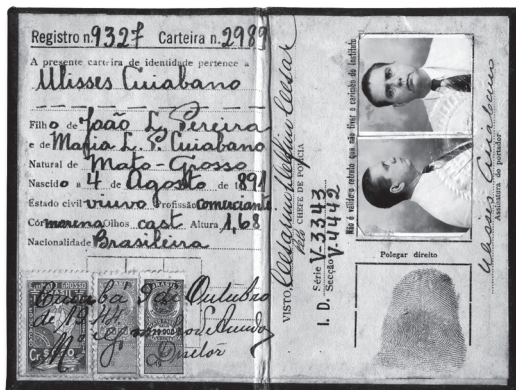 Registro n. 9327 Carteira n. 2989
A presente carteira de identidade pertence a
Ulisses Cuiabano
Filho de João L. Pereira
e de Maria L. P. Cuiabano
Natural de Mato-Grosso
Nascido a 4 de Agosto de 1891
Estado civil viuvo Profissão comerciante
Côr morena Olhos cast Altura 1,68
Nacionalidade Brasileira
MATO GROSSO
BRASIL
Cuiabá 9 de Outubro
de 1944
Diretor
VISTO,
Pelo CHEFE DE POLICIA
I. D. Série V-3343
Secção V-4442
Não é válido o retrato que não tiver o carimbo do Instituto
Ulisses Cuiabano
Assinatura do portador
Polegar direito